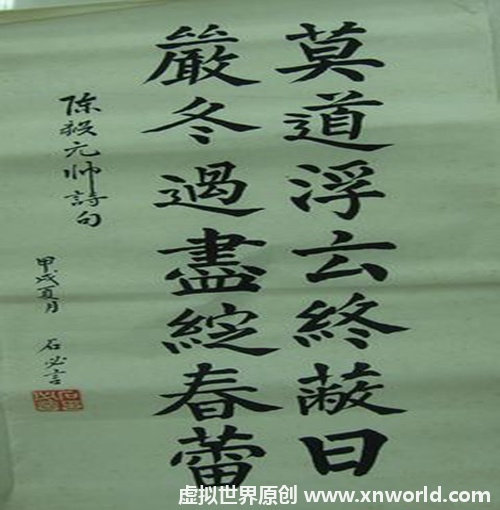 莫道浮云終蔽日
嚴冬過盡綻春蕾
陈毅元帅詩句
甲戌夏月 石必言
虚拟世界原创 www.xnworld.com